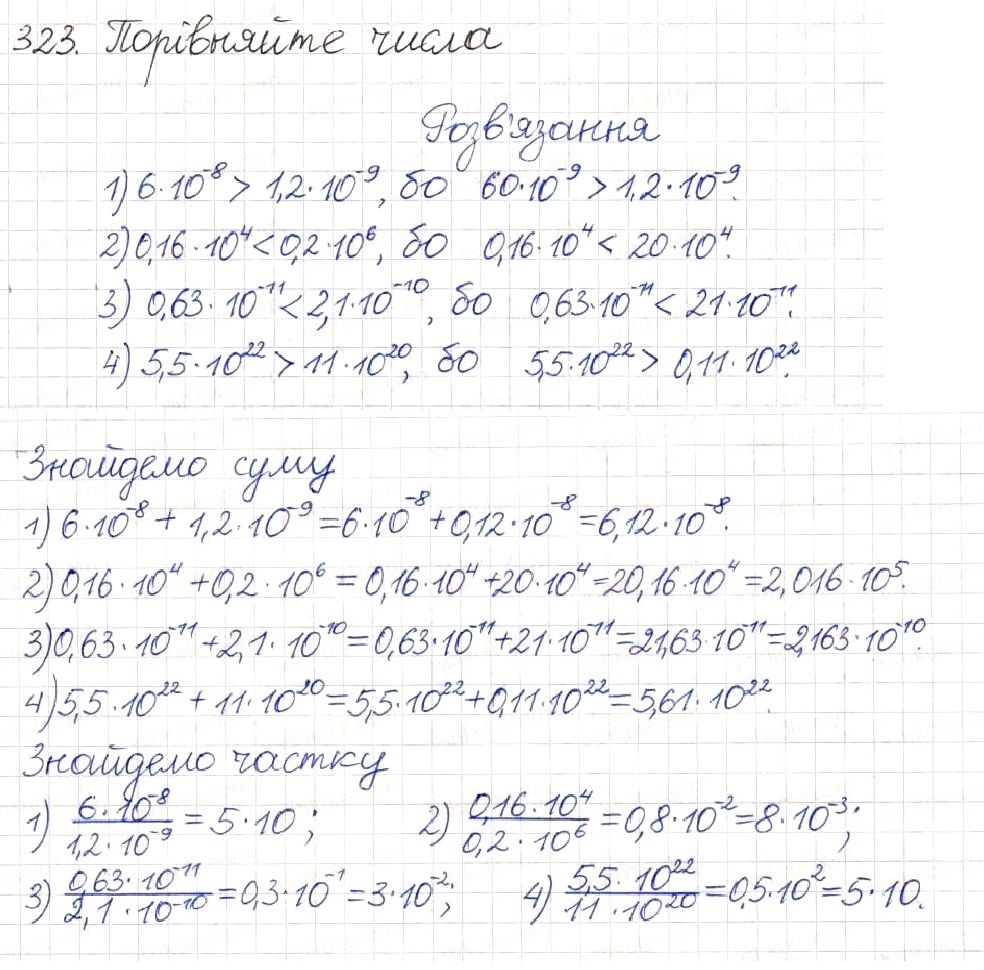 323. Порівняйте числа
Розв'язання
1) 6·10⁻⁸ > 1,2·10⁻⁹, бо 60·10⁻⁹ > 1,2·10⁻⁹.
2) 0,16·10⁴ < 0,2·10⁶, бо 0,16·10⁴ < 20·10⁴.
3) 0,63·10⁻¹¹ < 2,1·10⁻¹⁰, бо 0,63·10⁻¹¹ < 21·10⁻¹¹.
4) 5,5·10²² > 11·10²⁰, бо 5,5·10²² > 0,11·10²².
Знайдемо суму
1) 6·10⁻⁸ + 1,2·10⁻⁹ = 6·10⁻⁸ + 0,12·10⁻⁸ = 6,12·10⁻⁸.
2) 0,16·10⁴ + 0,2·10⁶ = 0,16·10⁴ + 20·10⁴ = 20,16·10⁴ = 2,016·10⁵.
3) 0,63·10⁻¹¹ + 2,1·10⁻¹⁰ = 0,63·10⁻¹¹ + 21·10⁻¹¹ = 21,63·10⁻¹¹ = 2,163·10⁻¹⁰.
4) 5,5·10²² + 11·10²⁰ = 5,5·10²² + 0,11·10²² = 5,61·10²².
Знайдемо частку
1) (6·10⁻⁸)/(1,2·10⁻⁹) = 5·10; 2) (0,16·10⁴)/(0,2·10⁶) = 0,8·10⁻² = 8·10⁻³;
3) (0,63·10⁻¹¹)/(2,1·10⁻¹⁰) = 0,3·10⁻¹ = 3·10⁻²; 4) (5,5·10²²)/(11·10²⁰) = 0,5·10² = 5·10.